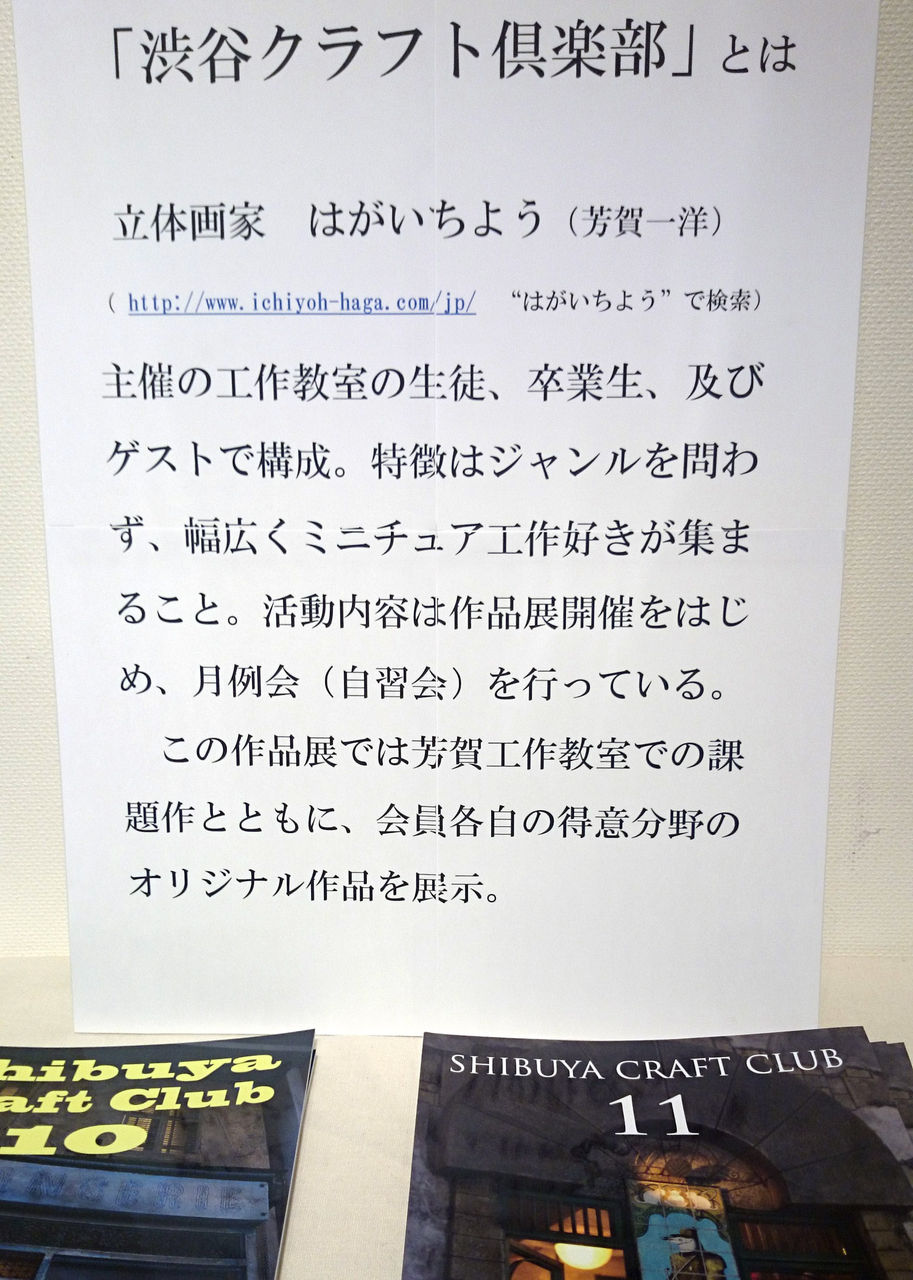 「渋谷クラフト倶楽部」とは
立体画家　はがいちよう（芳賀一洋）
（ http://www.ichiyoh-haga.com/jp/　“はがいちよう”で検索）
主催の工作教室の生徒、卒業生、及び
ゲストで構成。特徴はジャンルを問わ
ず、幅広くミニチュア工作好きが集ま
ること。活動内容は作品展開催をはじ
め、月例会（自習会）を行っている。
　この作品展では芳賀工作教室での課
題作とともに、会員各自の得意分野の
オリジナル作品を展示。
hibuya
aft Club
10
SHIBUYA CRAFT CLUB
11